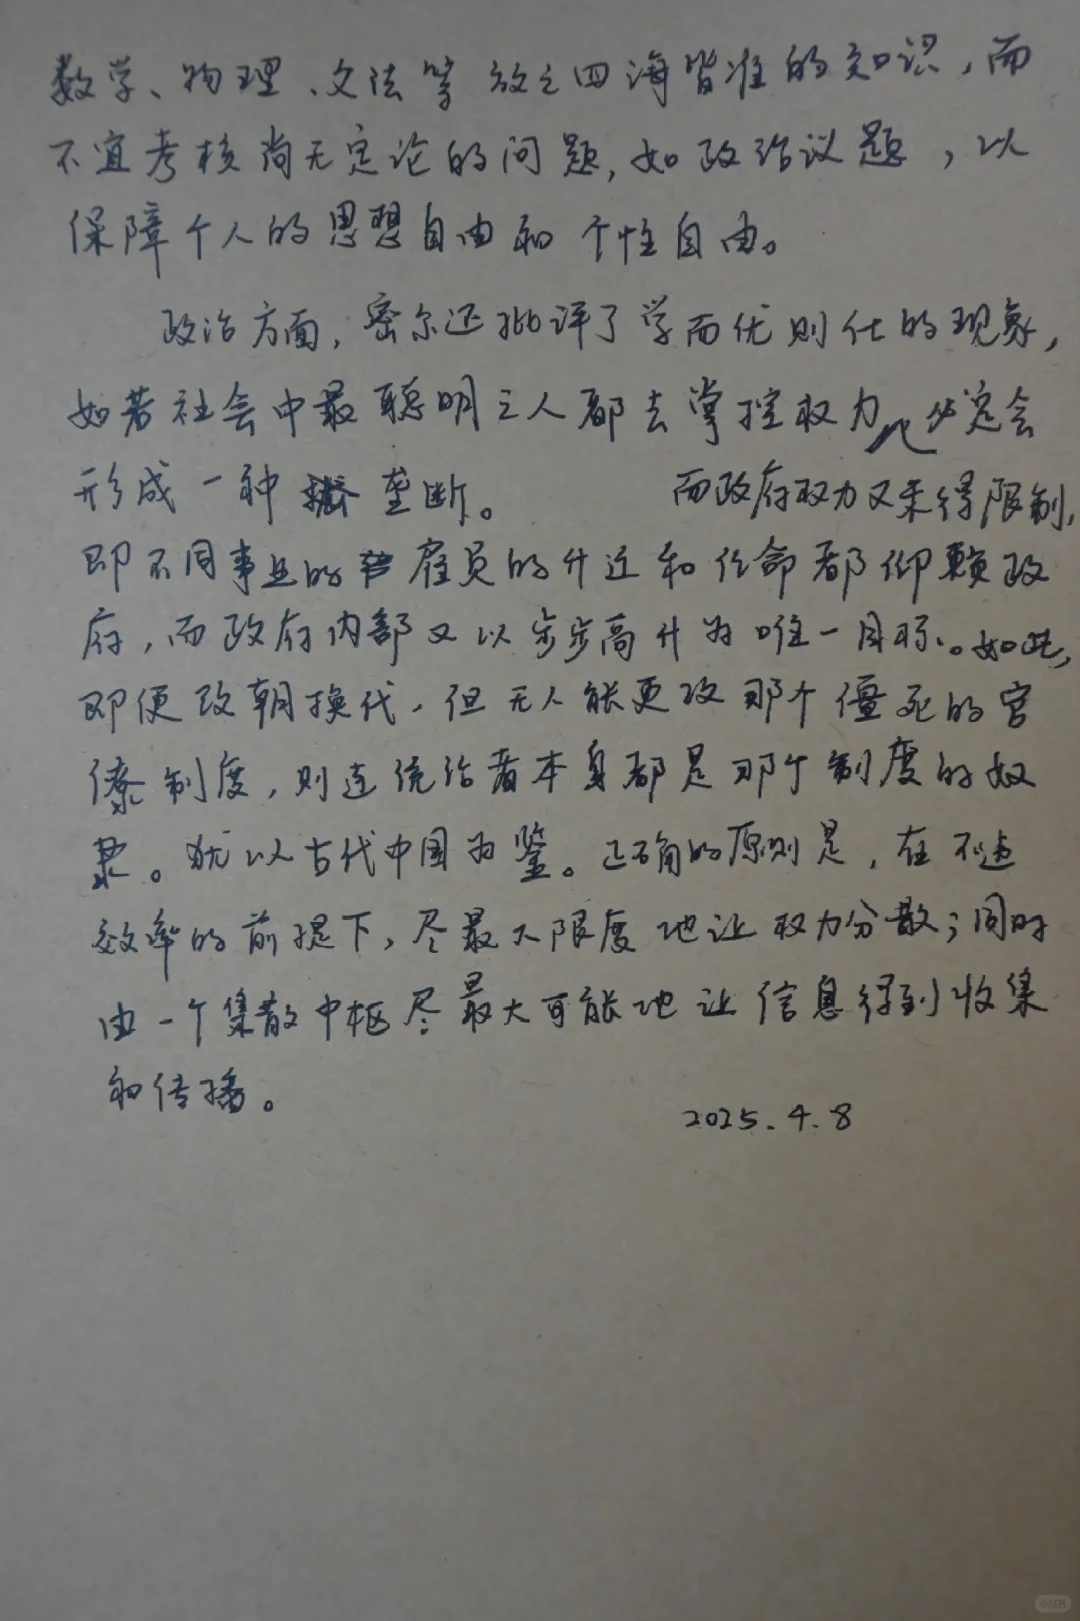 数学、物理、文法等放之四海皆准的知识，而
不宜考核尚无定论的问题，如政治议题，以
保障个人的思想自由和个性自由。
政治方面，密尔还批评了学而优则仕的现象，
如若社会中最聪明之人都去掌控权力，必定会
形成一种垄断。而政府权力又未得限制，
即不同事业的雇员的升迁和任命都仰赖政
府，而政府内部又以步步高升为唯一目标。如此，
即便改朝换代，但无人能更改那个僵死的官
僚制度，则连统治者本身都是那个制度的奴
隶。犹以古代中国为鉴。正确的原则是，在不违
效率的前提下，尽最大限度地让权力分散；同时
由一个集散中枢尽最大可能地让信息得到收集
和传播。
2025.4.8
小红书